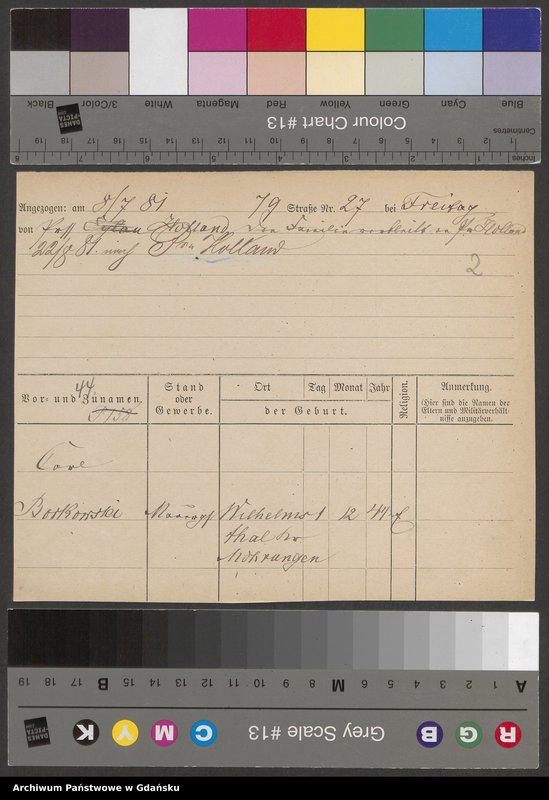 Blue Cyan Green Yellow Red Magenta White 3/Color Black
Colour Chart #13
DANES PICTA
Centimetres
1 2 3 4 5 6 7 8 9 10 11 12 13 14 15 16 17 18 19
Inches 1 2 3 4 5 6 7 8
Angezogen: am 8/7 81 79 Straße Nr. 27 bei Freitag
von Holland Die Familie verbleibt in Pr Holland
22/8 81. nach Pr. Holland
2
44
Vor- und Zunamen.
Stand oder Gewerbe.
Ort Tag Monat Jahr
der Geburt.
Religion.
Anmerkung.
(Hier sind die Namen der Eltern und Militärverhältnisse anzugeben.)
Carl
Borkowski Wilhelms 1 12 44
thal Kr
Mohrungen
A 1 2 3 4 5 6 7 8 M 9 10 11 12 13 14 15 B 17 18 19
R G B Grey Scale #13 C M Y K
DANES PICTA
Archiwum Państwowe w Gdańsku